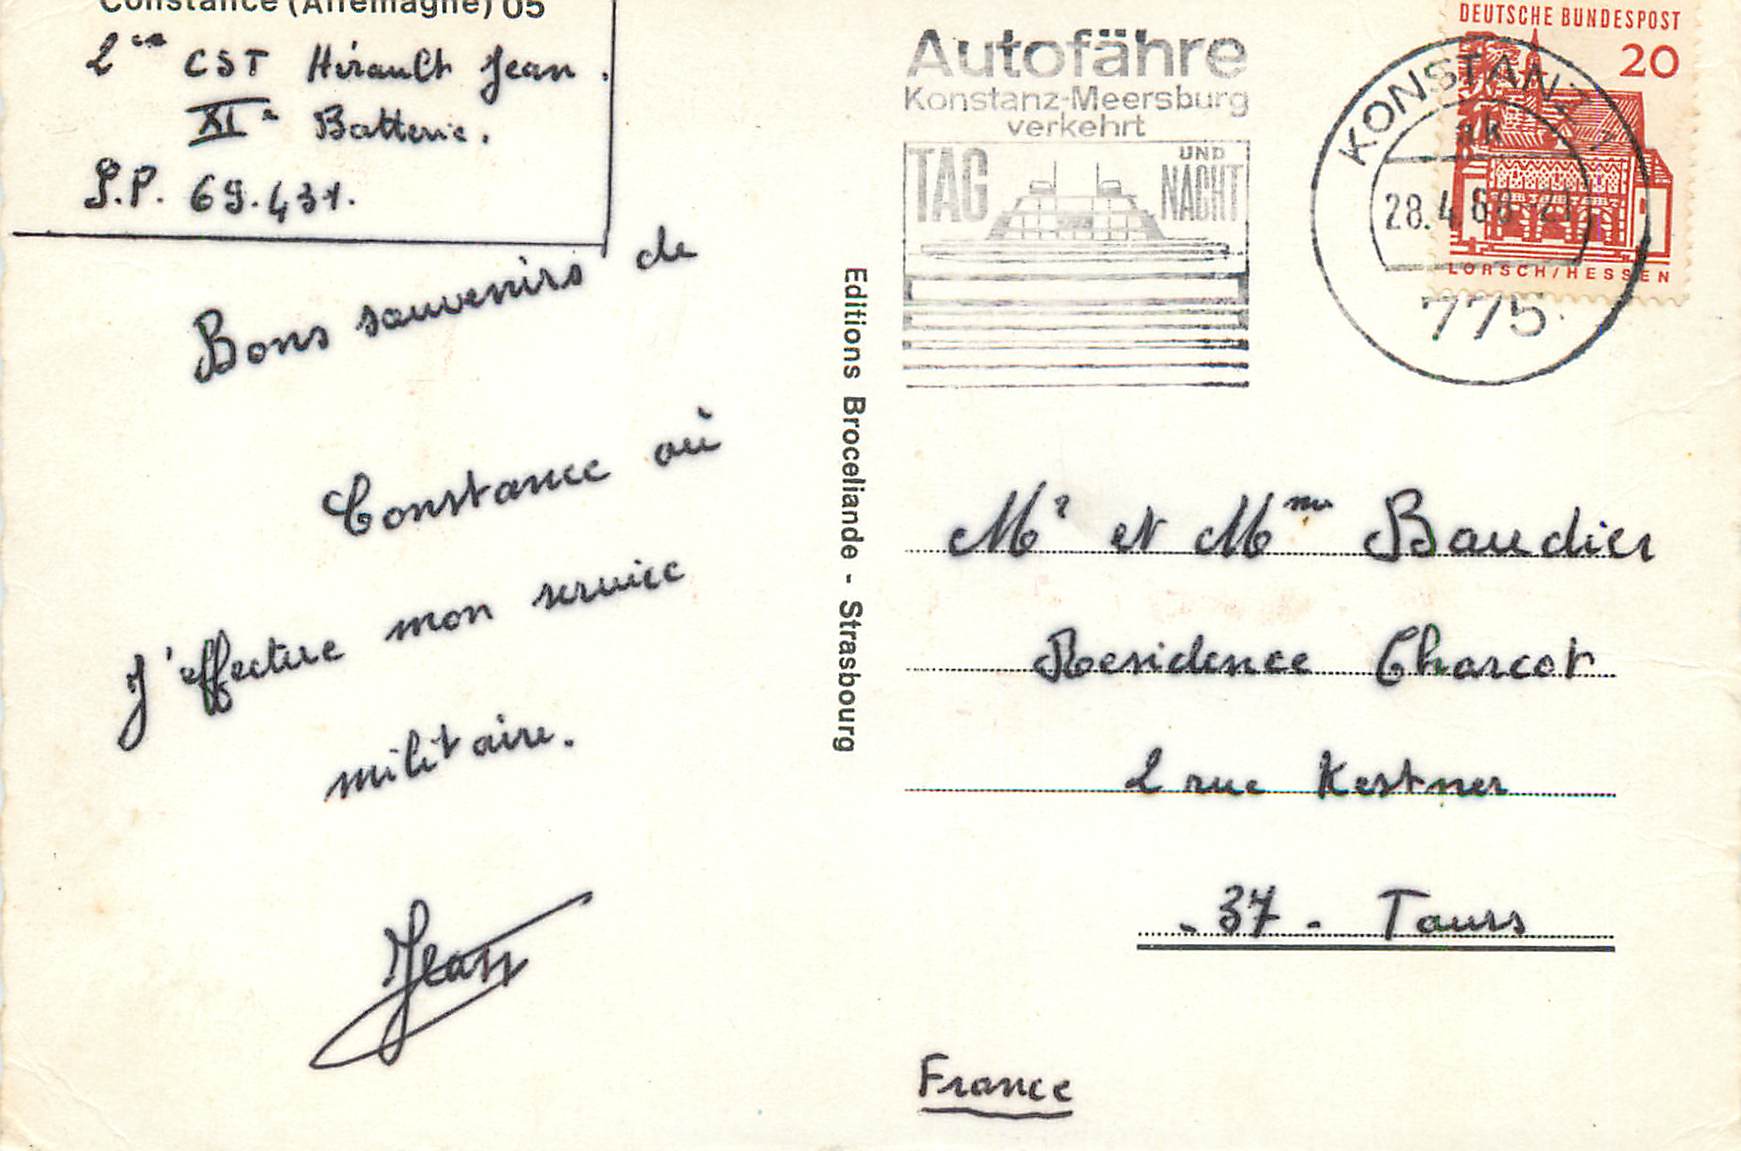 Constance (Allemagne) 05
2ème CST Hérault Jean.
XIe Batterie.
S.P. 69.431.
Bons souvenirs de
Constance où
J'effectue mon service
militaire.
Jean
Editions Broceliande - Strasbourg
Autofähre
Konstanz-Meersburg
verkehrt
TAG UND NACHT
KONSTANZ 1
28.4.68-21
775
DEUTSCHE BUNDESPOST
20
LORSCH/HESSEN
Mr et Mme Baudier
Residence Charcot
2 rue Kestner
- 37 - Tours
France